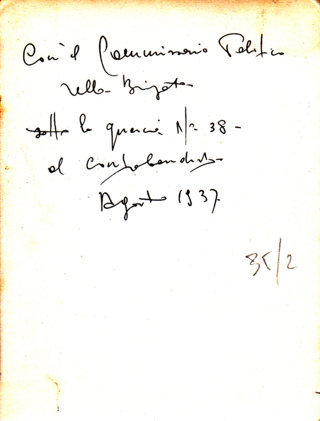 Con il Commissario Politico
della Brigata
sotto la quercia N° 38 -
al contrabandista
Agosto 1937
35/2